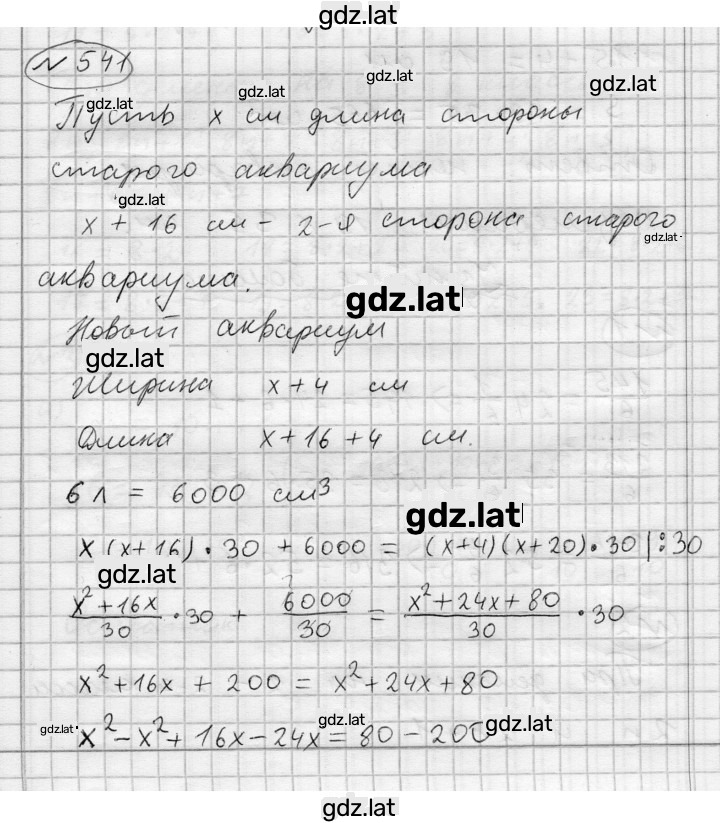 gdz.lat
N 541
gdz.lat gdz.lat gdz.lat gdz.lat
Пусть x см длина стороны
старого аквариума
gdz.lat
x + 16 см - 2-я сторона старого
gdz.lat
аквариума.
gdz.lat
Новый аквариум
gdz.lat
Ширина x + 4 см
Длина x + 16 + 4 см.
6 л = 6000 см³
gdz.lat
x (x + 16) · 30 + 6000 = (x+4)(x+20)·30 |:30
gdz.lat
(x² + 16x)/30 · 30 + 6000/30 = (x² + 24x + 80)/30 · 30
x² + 16x + 200 = x² + 24x + 80
gdz.lat gdz.lat gdz.lat
x² - x² + 16x - 24x = 80 - 200
gdz.lat